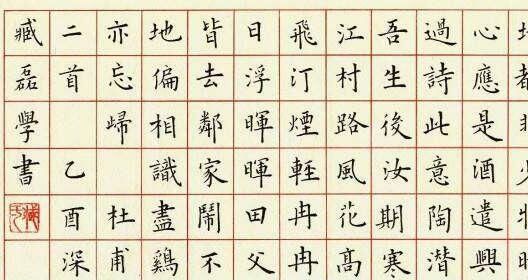 心應是酒遣興
過詩此意陶潛
吾生後汝期寒
江村路風花高
飛汀煙輕冉冉
日浮暉暉田父
皆去鄰家鬧不
地偏相識盡鷄
亦忘歸 杜甫
二首 乙酉深
臧磊學書